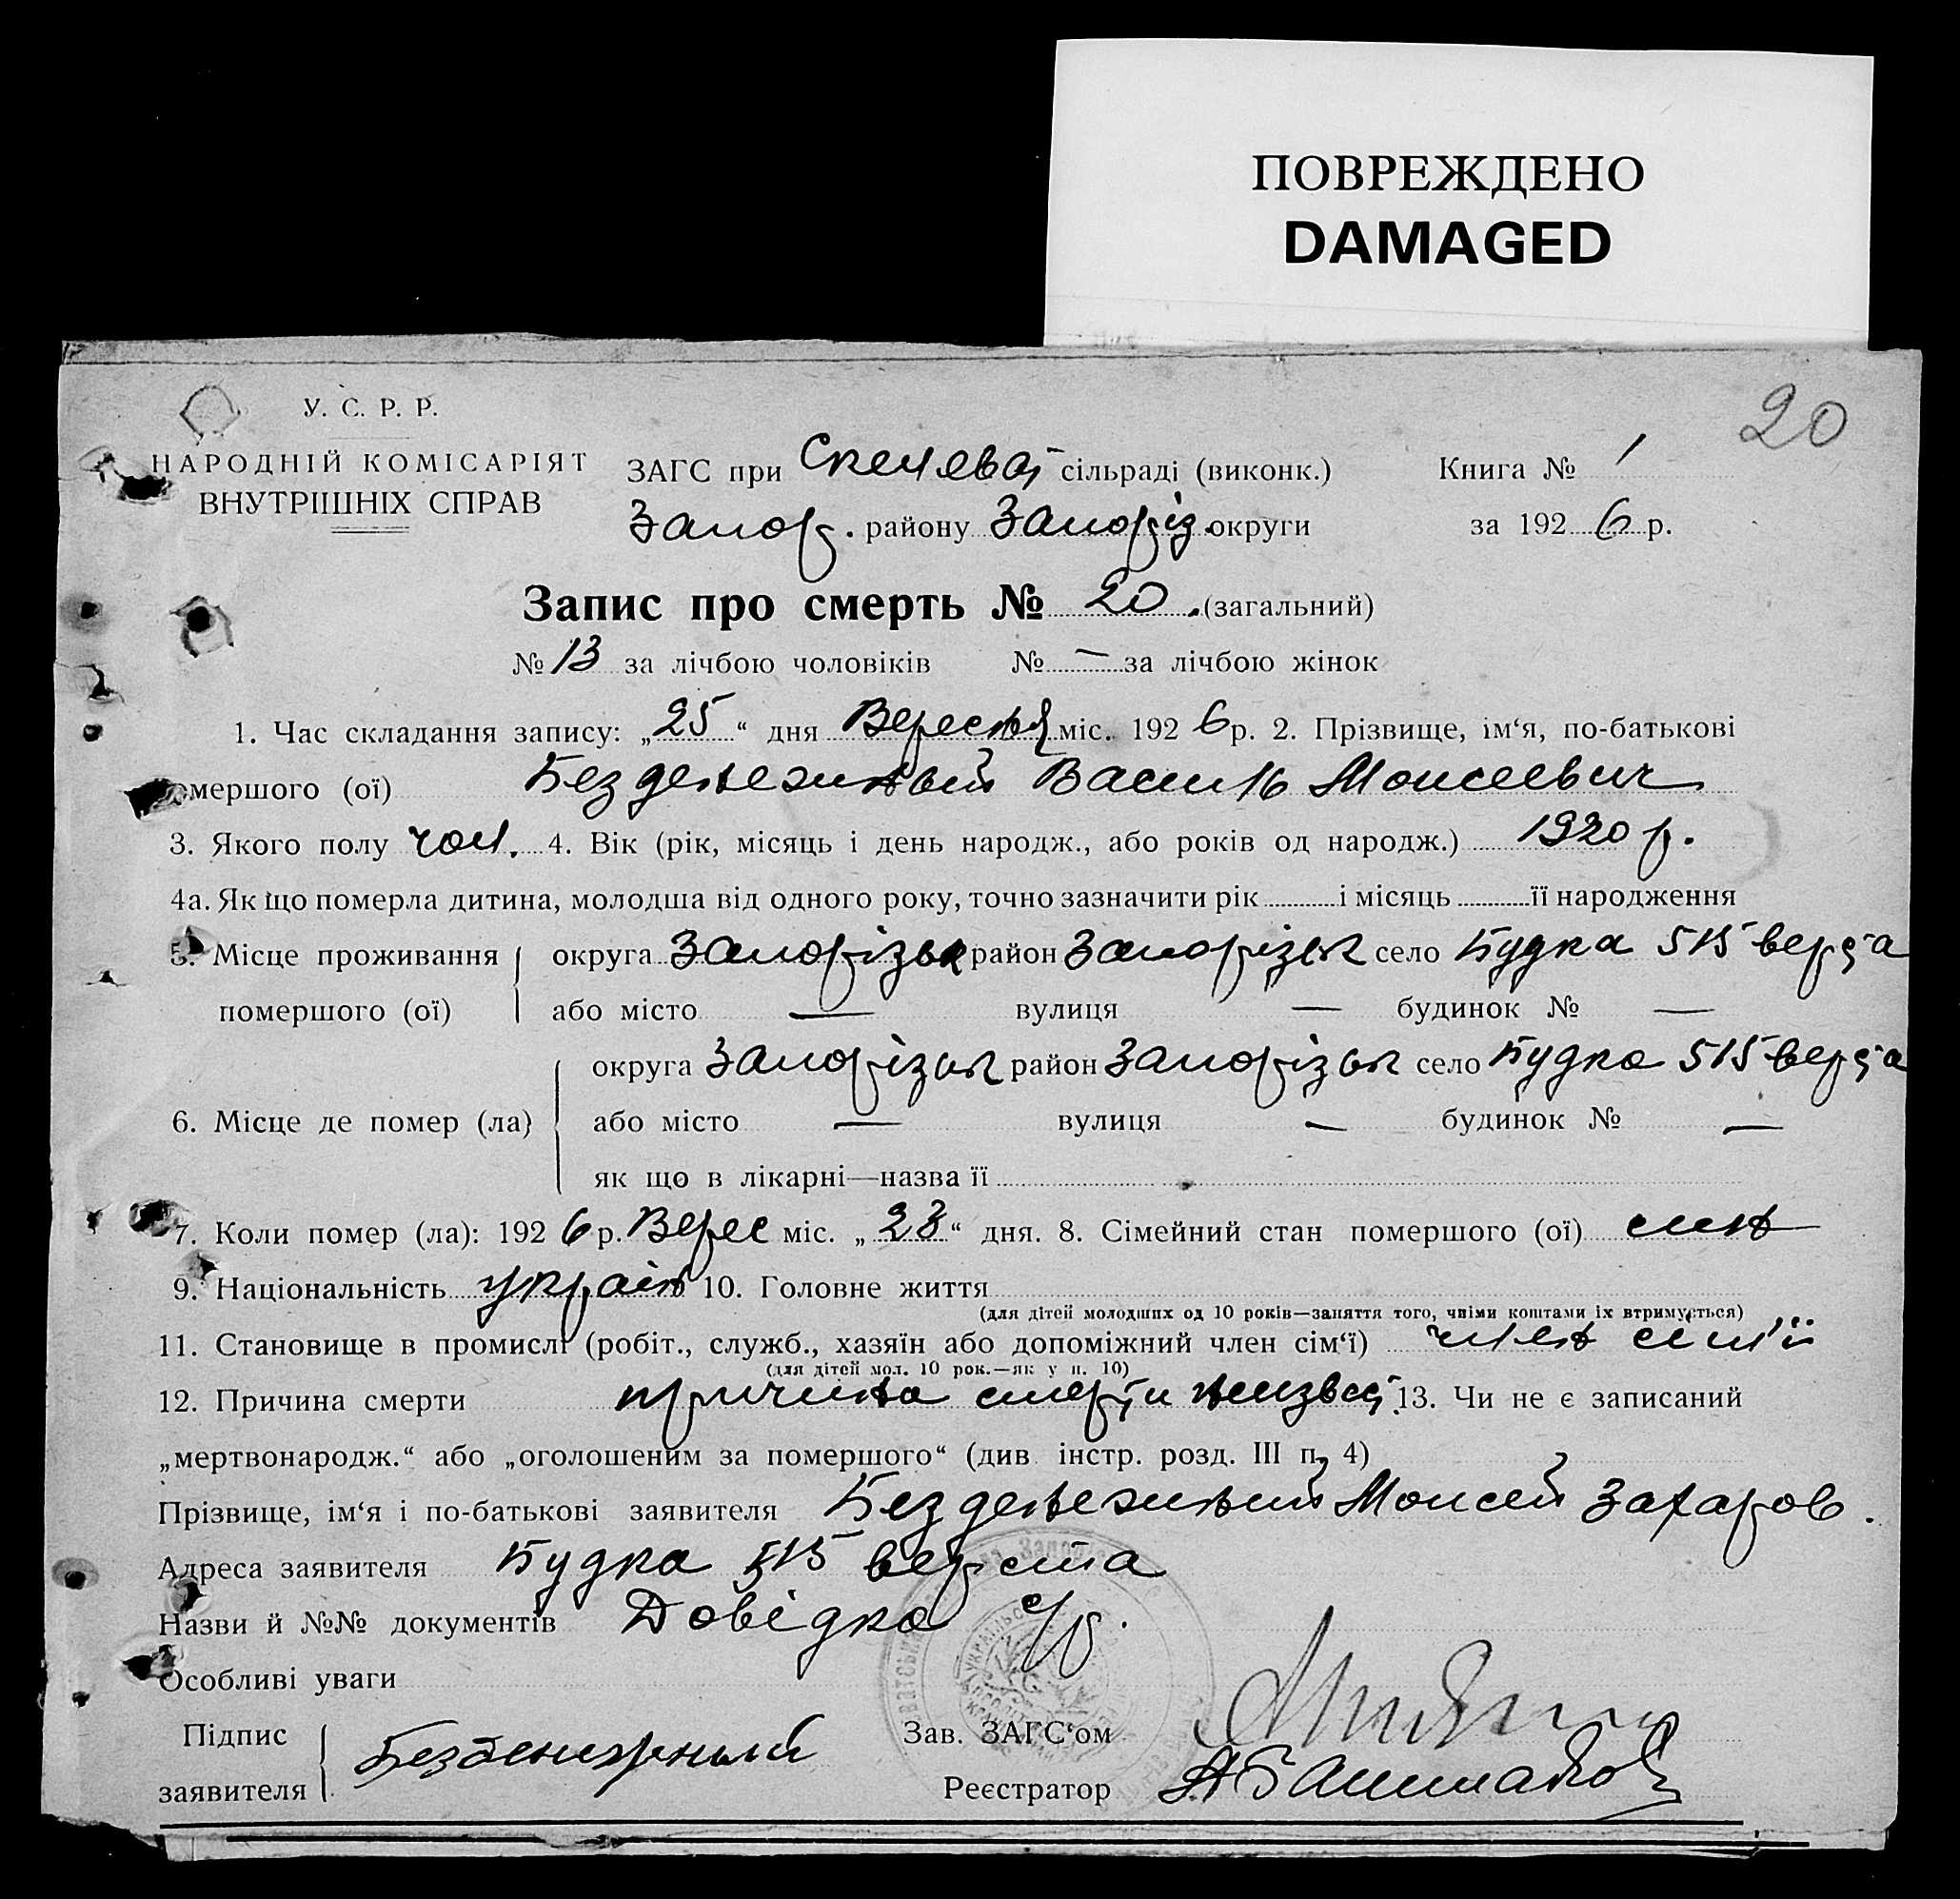 ПОВРЕЖДЕНО
DAMAGED
20
У. С. Р. Р.
НАРОДНІЙ КОМІСАРІЯТ
ВНУТРІШНІХ СПРАВ
ЗАГС при сільраді (виконк.) Книга № 1
Запор. району Запоріз. округи за 1926 р.
Запис про смерть № 20. (загальний)
№ 13 за лічбою чоловіків №—за лічбою жінок
1. Час складання запису: „25“ дня Вересня міс. 1926 р. 2. Прізвище, ім‘я, по-батькові
омершого (ої) Безденежний Василь Моисеевич
3. Якого полу чол. 4. Вік (рік, місяць і день народж., або років од народж.) 1920 р.
4а. Як що померла дитина, молодша від одного року, точно зазначити рік і місяць її народження
5. Місце проживання округа Запорізьк район Запорізьк село Будка 515 верста
помершого (ої) або місто — вулиця — будинок № —
округа Запорізьк район Запорізьк село Будка 515 верста
6. Місце де помер (ла) або місто — вулиця — будинок № —
як що в лікарні—назва її
7. Коли помер (ла): 1926 р. Верес міс. „23“ дня. 8. Сімейний стан помершого (ої) син
9. Національність україн 10. Головне життя
(для дітей молодших од 10 років—заняття того, чиїми коштами їх втримується)
11. Становище в промислі (робіт., служб., хазяїн або допоміжний член сім‘ї) член сим'ї
(для дітей мол. 10 рок.—як у п. 10)
12. Причина смерти причина смерти 13. Чи не є записаний
„мертвонародж.“ або „оголошеним за помершого“ (див. інстр. розд. III п. 4)
Прізвище, ім‘я і по-батькові заявителя Безденежний Моисей Захаров.
Адреса заявителя Будка 515 верста
Назви й №№ документів Довідка с/р.
Особливі уваги
Підпис Зав. ЗАГС‘ом
заявителя Безденежный Реєстратор